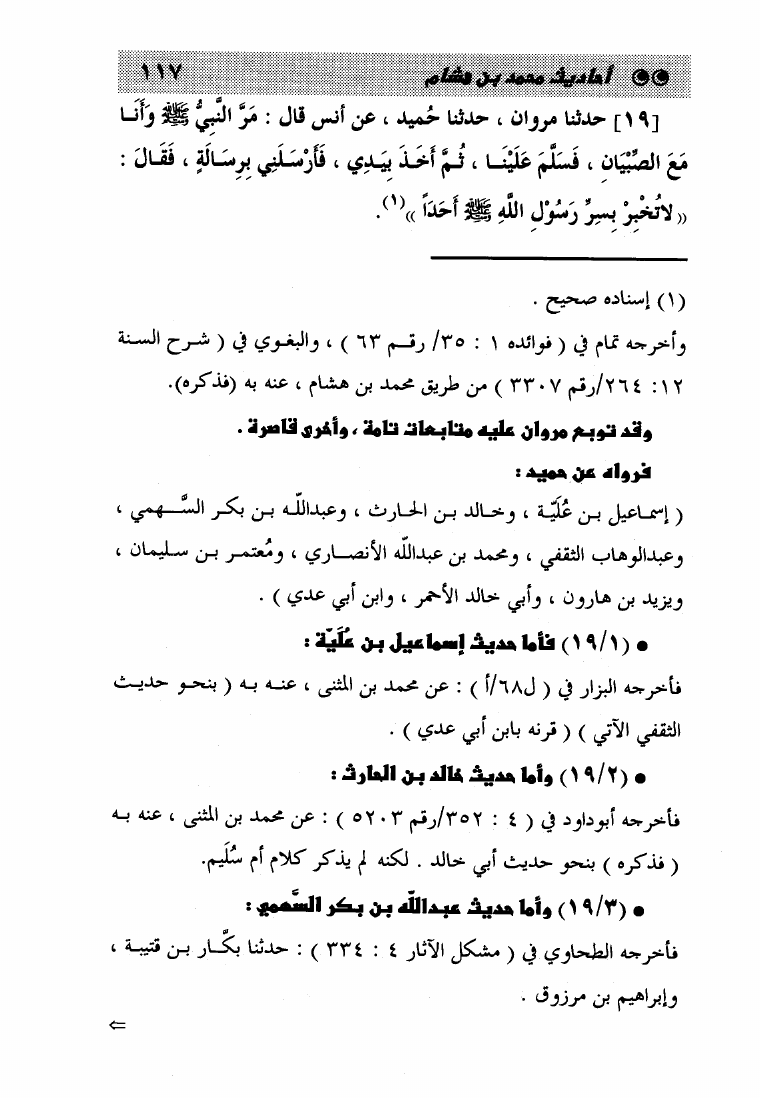 أحاديث محمد بن هشام ١١٧
[١٩] حدثنا مروان ، حدثنا حُميد ، عن أنس قال : مَرَّ النَّبِيُّ ﷺ وَأَنَا
مَعَ الصِّبْيَانِ ، فَسَلَّمَ عَلَيْنَا ، ثُمَّ أَخَذَ بِيَدِي ، فَأَرْسَلَنِي بِرِسَالَةٍ ، فَقَالَ :
« لاتُخْبِرْ بِسِرِّ رَسُوْلِ اللَّهِ ﷺ أَحَدَاً »(١).
(١) إسناده صحيح .
وأخرجه تمام في ( فوائده ١ : ٣٥/ رقم ٦٣ ) ، والبغوي في ( شرح السنة
١٢: ٢٦٤/رقم ٣٣٠٧ ) من طريق محمد بن هشام ، عنه به (فذكره).
وقد توبع مروان عليه متابعات تامة ، وأخرى قاصرة .
فرواه عن حميد :
( إسماعيل بن عُلَيّة ، وخالد بن الحارث ، وعبداللّه بن بكر السَّهمي ،
وعبدالوهاب الثقفي ، ومحمد بن عبداللّه الأنصاري ، ومُعتمر بن سليمان ،
ويزيد بن هارون ، وأبي خالد الأحمر ، وابن أبي عدي ) .
● (١٩/١) فأما حديث إسماعيل بن عُلَيّة :
فأخرجه البزار في ( ل٦٨/أ ) : عن محمد بن المثنى ، عنه به ( بنحو حديث
الثقفي الآتي ) ( قرنه بابن أبي عدي ) .
● (١٩/٢) وأما حديث خالد بن الحارث :
فأخرجه أبوداود في ( ٤ : ٣٥٢/رقم ٥٢٠٣ ) : عن محمد بن المثنى ، عنه به
( فذكره ) بنحو حديث أبي خالد . لكنه لم يذكر كلام أم سُليم.
● (١٩/٣) وأما حديث عبداللّه بن بكر السَّهمي :
فأخرجه الطحاوي في ( مشكل الآثار ٤ : ٣٣٤ ) : حدثنا بكَّار بن قتيبة ،
وإبراهيم بن مرزوق .
⇐